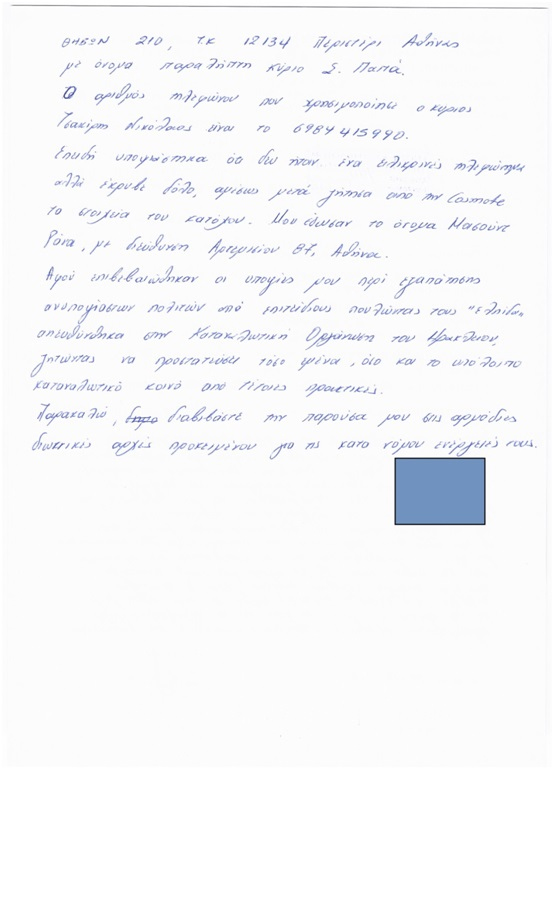 ΘΗΒΩΝ 210, Τ.Κ 12134 Περιστέρι Αθήνας
με όνομα παραλήπτη κύριο Σ. Παπά.
Ο αριθμός τηλεφώνου που χρησιμοποίησε ο κύριος
Τσακίρη Νικόλαος είναι το 6984415990.
Επειδή υποψιάστηκα ότι δεν ήταν ένα ειλικρινές τηλεφώνημα
αλλά έκρυβε δόλο, αμέσως μετά ζήτησα από την Cosmote
τα στοιχεία του κατόχου. Μου έδωσαν το όνομα Μασούντ
Ράνα, με διεύθυνση Αρτεμισίου 87, Αθήνα.
Αφού επιβεβαιώθηκαν οι υποψίες μου περί εξαπάτησης
ανυποψίαστων πολιτών από επιτήδειους πουλώντας τους "ελπίδα"
απευθύνθηκα στην Καταναλωτική Οργάνωση του Ηρακλείου,
ζητώντας να προστατεύσει τόσο εμένα, όσο και το υπόλοιπο
καταναλωτικό κοινό από τέτοιες πρακτικές.
Παρακαλώ, διαβιβάστε την παρούσα μου στις αρμόδιες
διωκτικές αρχές προκειμένου για τις κατα νόμου ενέργειές τους.